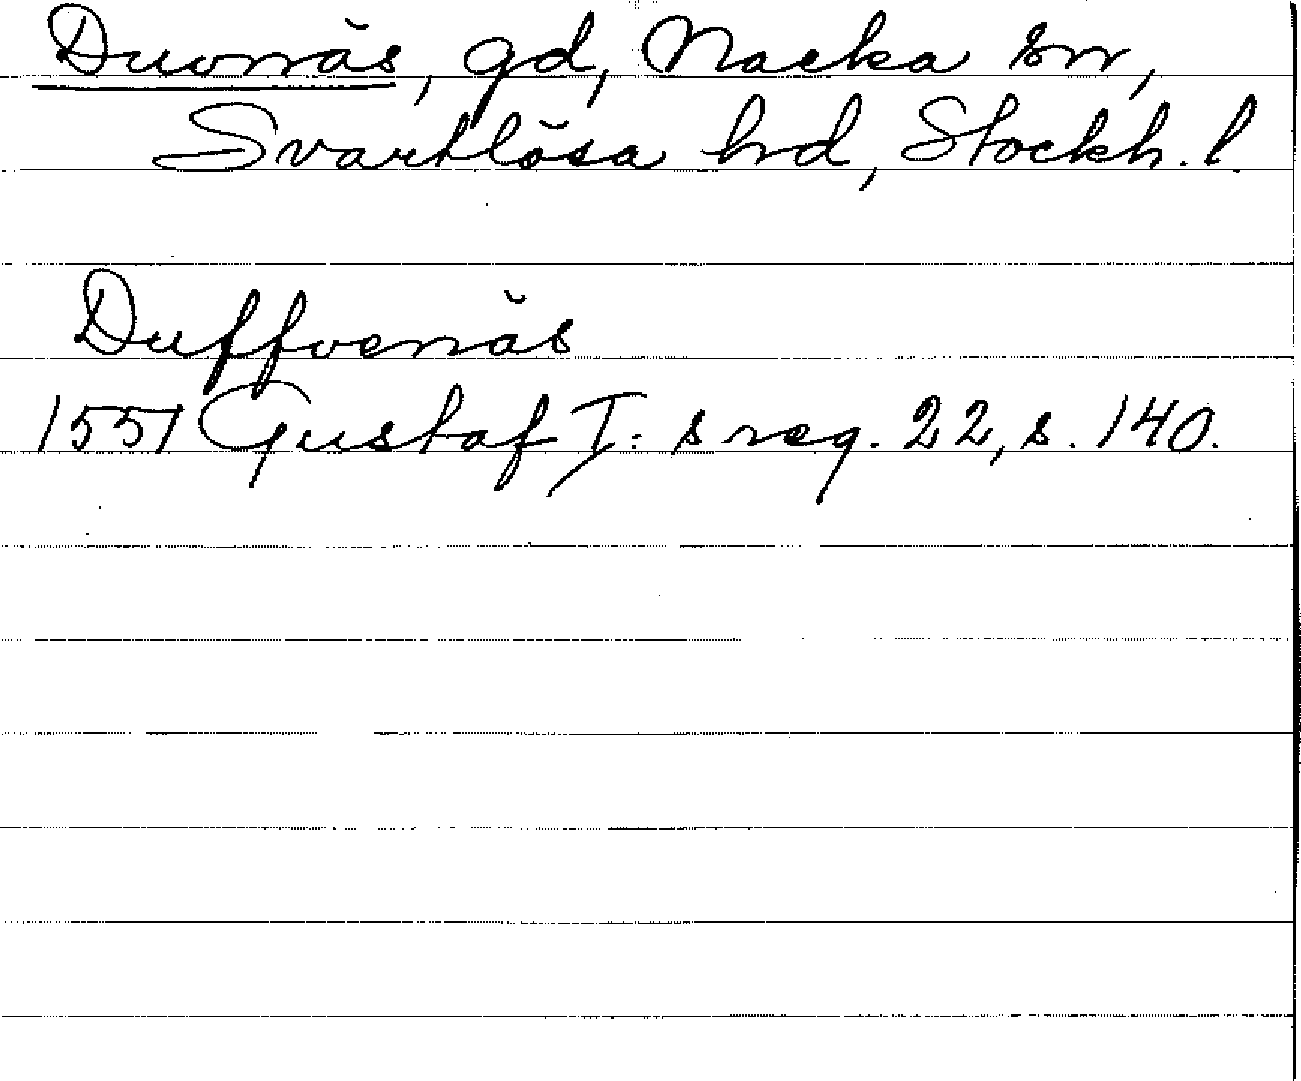 Duvnäs, gd, Nacka sn,
Svartlösa hd, Stockh. l.
Duffvenäs
1551 Gustaf I:s reg. 22, s. 140.